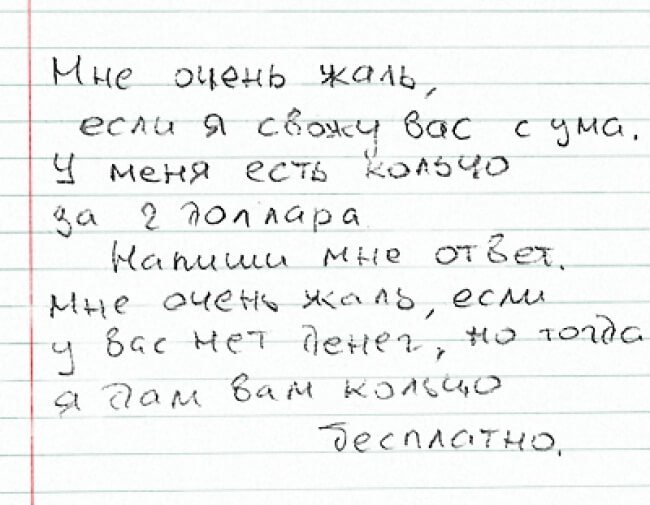 Мне очень жаль,
если я свожу вас с ума.
У меня есть кольцо
за 2 доллара
Напиши мне ответ.
Мне очень жаль, если
у вас нет денег, но тогда
я дам вам кольцо
бесплатно.